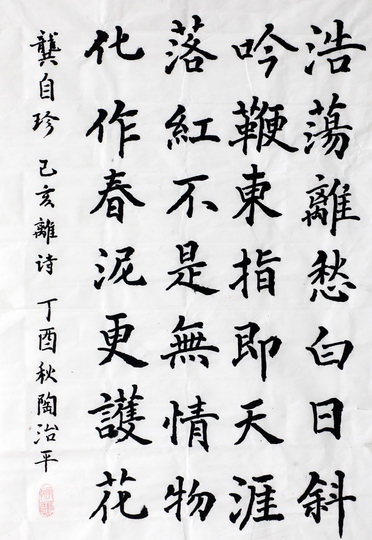 浩蕩離愁白日斜
吟鞭東指即天涯
落紅不是無情物
化作春泥更護花
龔自珍 己亥離詩 丁酉秋陶治平